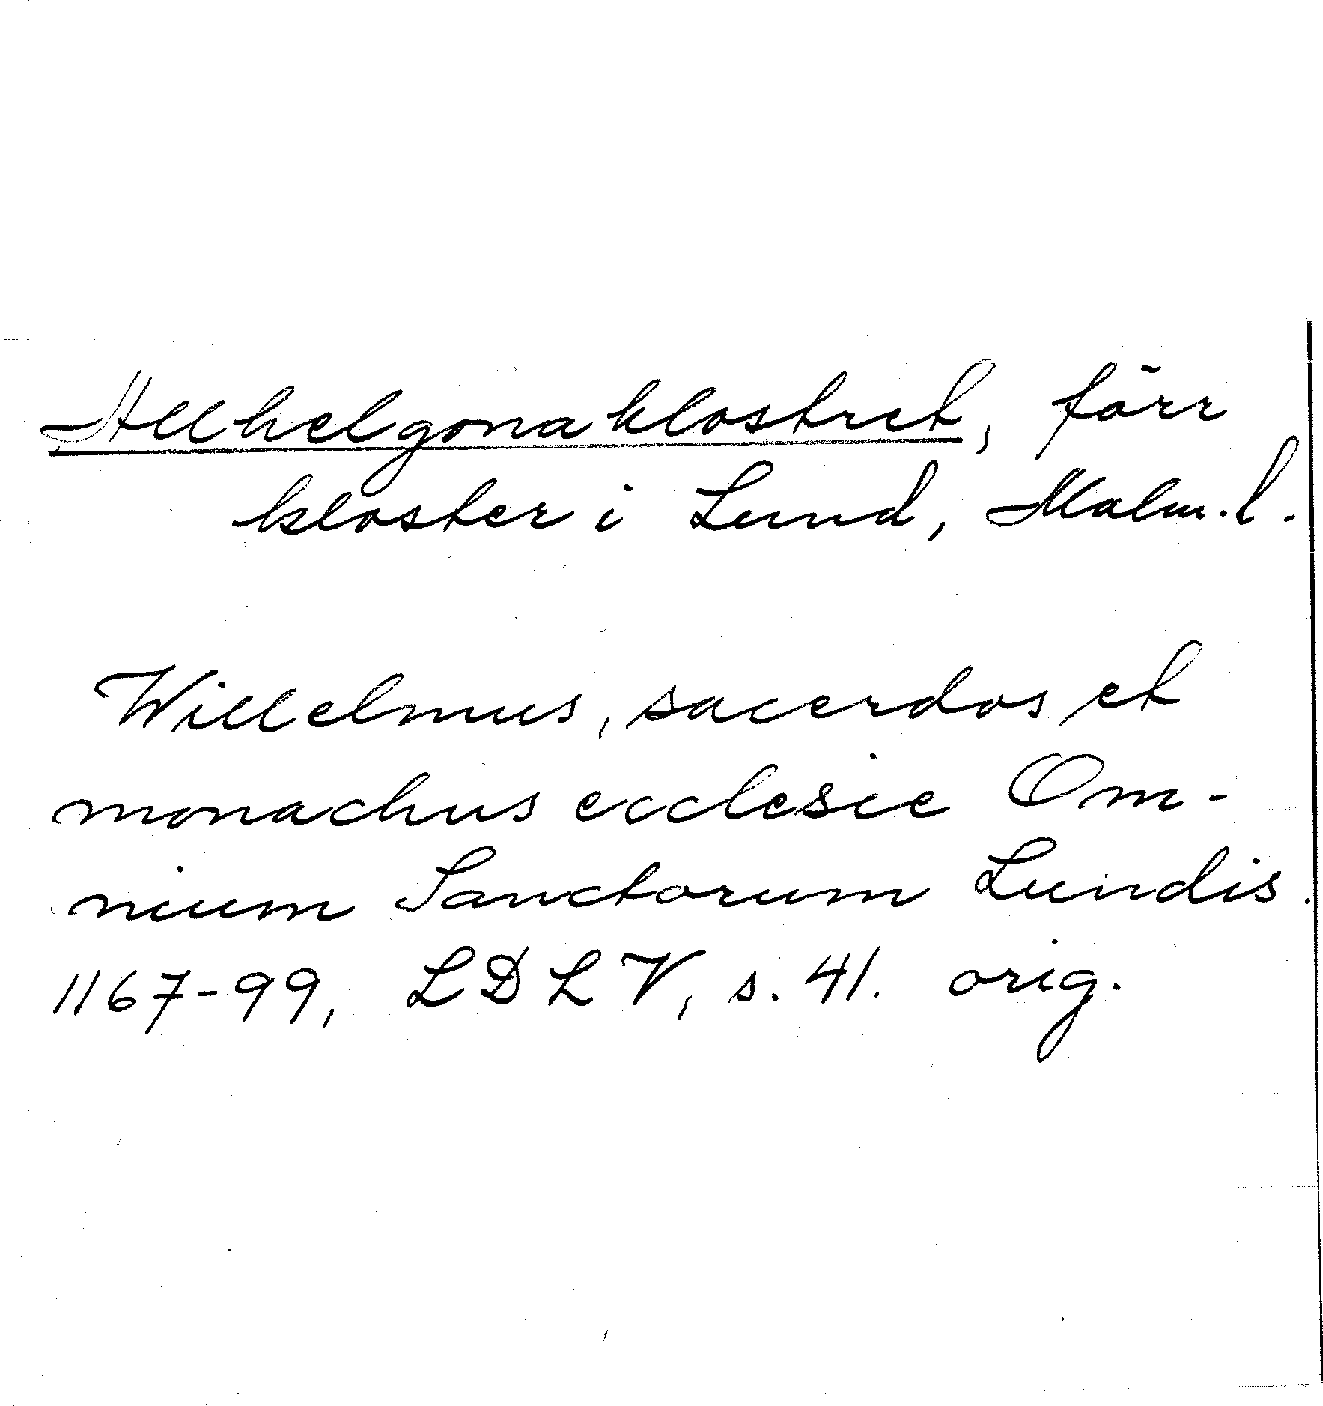 Allhelgonaklostret, förr
kloster i Lund, Malm. l.
Willelmus, sacerdos et
monachus ecclesie Om-
nium Sanctorum Lundis.
1167-99, LDLV, s. 41. orig.